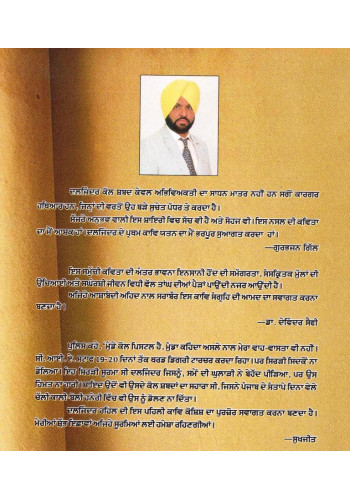 ਦਲਜਿੰਦਰ ਕੋਲ ਸ਼ਬਦ ਕੇਵਲ ਅਭਿਵਿਅਕਤੀ ਦਾ ਸਾਧਨ ਮਾਤਰ ਨਹੀਂ ਹਨ ਸਗੋਂ ਕਾਰਗਰ
ਹਥਿਆਰ ਹਨ, ਜਿਨ੍ਹਾਂ ਦੀ ਵਰਤੋਂ ਉਹ ਬੜੇ ਸੁਚੇਤ ਪੱਧਰ ਤੇ ਕਰਦਾ ਹੈ।
ਅਨੁਭਵ ਵਾਲੀ ਇਸ ਸ਼ਾਇਰੀ ਵਿਚ ਸੋਚ ਵੀ ਹੈ ਅਤੇ ਸੋਹਜ ਵੀ। ਇਸ ਨਸਲ ਦੀ ਕਵਿਤਾ
ਦਾ ਮੈਂ ਆਸ਼ਕ ਹਾਂ। ਦਲਜਿੰਦਰ ਦੇ ਪ੍ਰਥਮ ਕਾਵਿ ਯਤਨ ਦਾ ਮੈਂ ਭਰਪੂਰ ਸੁਆਗਤ ਕਰਦਾ ਹਾਂ।
—ਗੁਰਭਜਨ ਗਿੱਲ
ਇਸ ਸਮੁੱਚੀ ਕਵਿਤਾ ਦੀ ਅੰਤਰ ਭਾਵਨਾ ਇਨਸਾਨੀ ਹੋਂਦ ਦੀ ਸਮੱਗਰਤਾ, ਸੰਸਕ੍ਰਿਤਕ ਮੁੱਲਾਂ ਦੀ
ਉਚਿਆਈ ਅਤੇ ਸੰਘਰਸ਼ੀ ਜੀਵਨ ਵਿਧੀ ਵੱਲ ਤਾਂਘ ਦੀਆਂ ਪੈੜਾਂ ਪਾਉਂਦੀ ਨਜ਼ਰ ਆਉਂਦੀ ਹੈ।
ਅਜਿਹੇ ਆਸ਼ਾਬੰਦੀ ਅਹਿਦ ਨਾਲ ਸਰਾਬੋਰ ਇਸ ਕਾਵਿ ਸੰਗ੍ਰਹਿ ਦੀ ਆਮਦ ਦਾ ਸਵਾਗਤ ਕਰਨਾ
ਬਣਦਾ ਹੈ।
—ਡਾ. ਦੇਵਿੰਦਰ ਸੈਫ਼ੀ
ਪੁਲਿਸ ਕਹੇ, 'ਮੁੰਡੇ ਕੋਲ ਪਿਸਟਲ ਹੈ, ਮੁੰਡਾ ਕਹਿੰਦਾ ਅਸਲੇ ਨਾਲ ਮੇਰਾ ਵਾਹ-ਵਾਸਤਾ ਵੀ ਨਹੀਂ।
ਸੀ. ਆਈ. ਏ. ਸਟਾਫ 19-20 ਦਿਨਾਂ ਤੱਕ ਥਰਡ ਡਿਗਰੀ ਟਾਰਚਰ ਕਰਦਾ ਰਿਹਾ। ਪਰ ਸਿਰੜੀ ਸਿਦਕੋਂ ਨਾ
ਡੋਲਿਆ। ਇਹ ਸਿਰੜੀ ਸੂਰਮਾ ਸੀ ਦਲਜਿੰਦਰ ਜਿਸਨੂੰ, ਸਮੇਂ ਦੀ ਘੁਲਾੜੀ ਨੇ ਬੇਹੱਦ ਪੀੜਿਆ, ਪਰ ਉਸ
ਹਿੰਮਤ ਨਾ ਹਾਰੀ। ਸ਼ਾਇਦ ਉਦੋਂ ਵੀ ਉਸਦੇ ਕੋਲ ਸ਼ਬਦਾਂ ਦਾ ਸਹਾਰਾ ਸੀ, ਜਿਸਨੇ ਪੰਜਾਬ ਦੇ ਸੰਤਾਪੇ ਦਿਨਾਂ ਵੇਲੇ
ਚੱਲੀ ਕਾਲੀ-ਬੋਲੀ ਹਨੇਰੀ ਵਿੱਚ ਵੀ ਉਸ ਨੂੰ ਡੋਲਣ ਨਾ ਦਿੱਤਾ।
ਦਲਜਿੰਦਰ ਰਹਿਲ ਦੀ ਇਸ ਪਹਿਲੀ ਕਾਵਿ ਕੋਸ਼ਿਸ਼ ਦਾ ਪੁਰਜ਼ੋਰ ਸਵਾਗਤ ਕਰਨਾ ਬਣਦਾ ਹੈ।
ਮੇਰੀਆਂ ਸ਼ੁੱਭ ਇਛਾਵਾਂ ਅਜਿਹੇ ਸੂਰਮਿਆਂ ਲਈ ਹਮੇਸ਼ਾ ਰਹਿਣਗੀਆਂ।
—ਸੁਖਜੀਤ